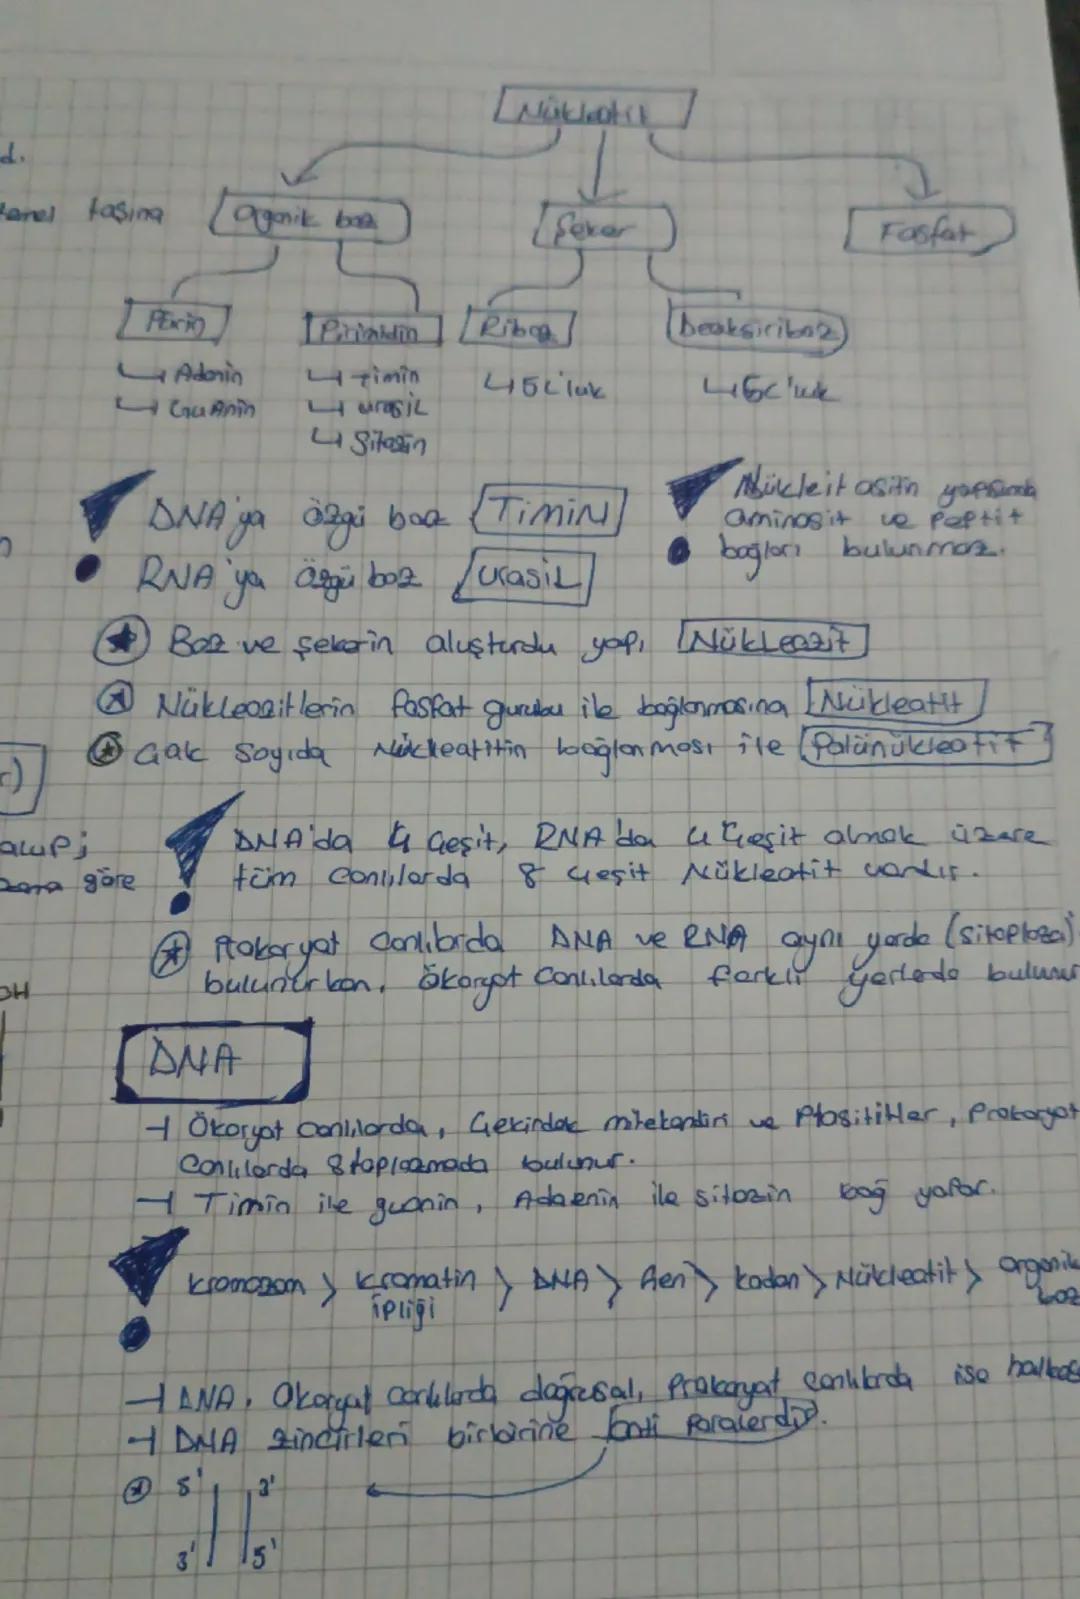 Nükleotit
d.
temel taşına
Organik baz
Şeker
Fosfat
Pürin
Pirimidin
Riboz
Deoksiriboz
↳ Adenin
↳ Timin
↳ 5C'luk
↳ 5C'luk
↳ Guanin
↳ urasil
↳ Sitozin
DNA'ya özgü baz Timin
RNA'ya özgü baz urasil
Nükleit asitin yapısında
aminoasit ve peptit
bağları bulunmaz.
Baz ve şekerin oluşturdu yapı Nükleozit
Nükleozitlerin fosfat gurubu ile bağlanmasına Nükleotit
Çok sayıda Nükleotitin bağlanması ile Polünükleotit
olup;
göre
DNA'da 4 çeşit, RNA'da 4 çeşit olmak üzere
tüm canlılarda 8 çeşit Nükleotit vardır.
Prokaryot canlılarda DNA ve RNA aynı yerde (sitoplaza)
bulunurken, Ökaryot canlılarda farklı yerlerde bulunur
OH
DNA
Ökaryot canlılarda, Çekirdek mitekondiri ve Plasititler, Prokaryot
canlılarda Sitoplazmada bulunur.
Timin ile guanin, Adaenin ile sitozin bağ yapar.
Kromozom > kromatin ipliği > DNA > Gen > kodon > Nükleotit > organik baz
DNA, Ökaryot canlılarda doğrusal, Prokaryot canlılarda ise halkas
DNA zincirleri birbirine anti Paralerdir.
5' 3'
3' 5'